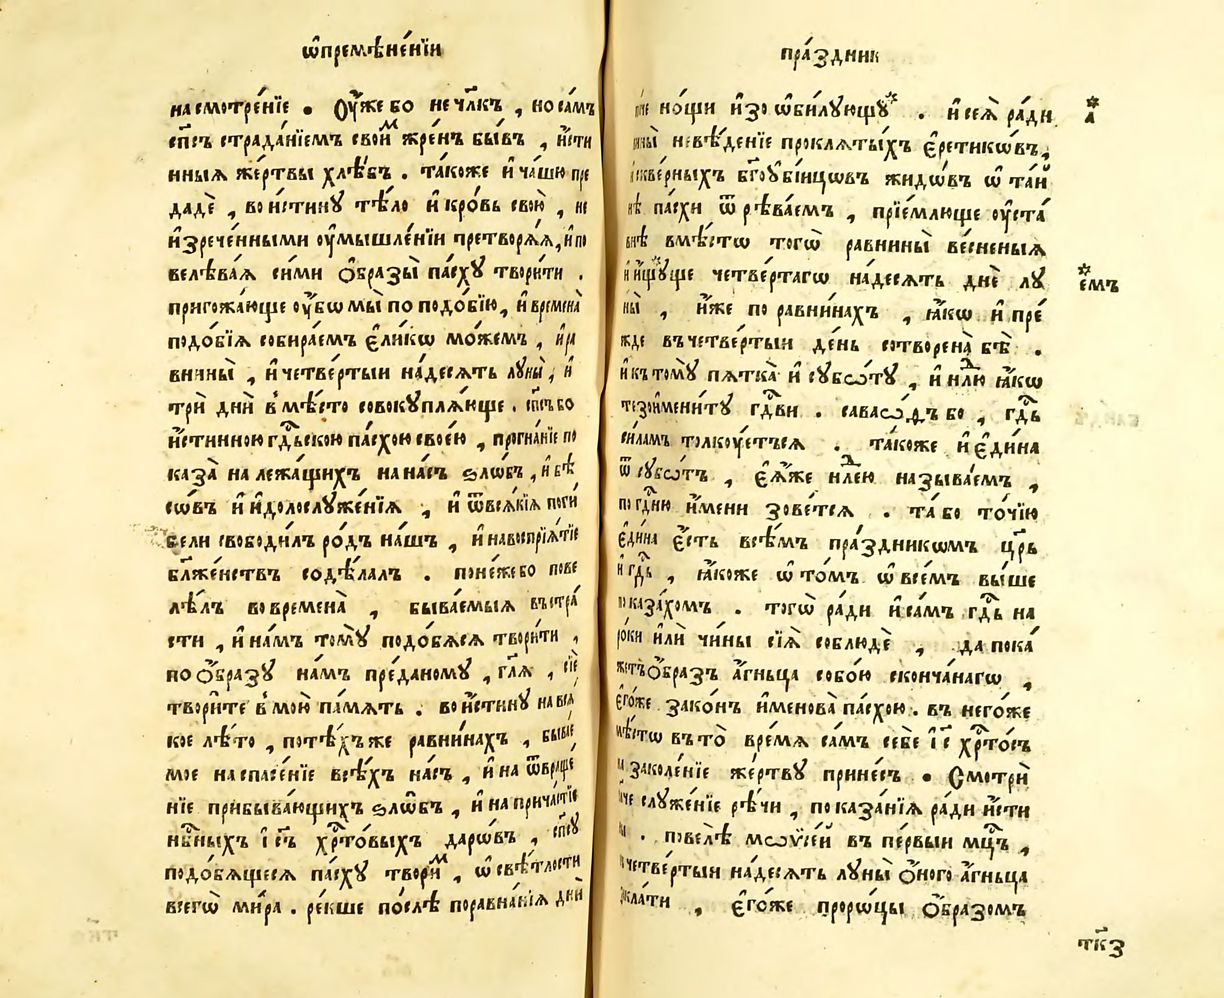 ѡ҆премѣне́нїи
на смотре́нїе . Оу҆́же бо не чл҃къ , но са́мъ
сп҃съ страда́нїемъ свои́м жре́нъ бы́въ , и҆́сти
нныѧ же́ртвы хлѣ́бъ . та́коже и҆ ча́шю пре
дадѐ , во и҆́стинꙋ тѣ́ло и҆ кро́вь свою̀ , не
и҆зрече́нными оу҆мышле́нїи претворѧ́ѧ , и҆ по
велѣва́ѧ си́ми ѻ҆́бразы̀ па́схꙋ твори́ти .
пригожа́юще оу҆́бѡ мы̀ по подо́бїю , и҆ времена̀
подо́бїѧ собира́емъ є҆ли́кѡ мо́жемъ , и҆ ра
внины̀ , и҆ четве́ртыи на́десѧть лꙋны̀ , и҆
трѝ днѝ в̾мѣ́сто совокꙋплѧ́юще . сп҃съ бо
и҆́стинною гдⷭ҇ьскою па́схою свое́ю , прогна́нїе по
каза̀ на лежа́щихъ на на́съ ѕлѡ́бъ , и҆ бѣ
сѡ́въ и҆ и҆долослꙋже́нїѧ , и҆ ѿ всѧ́кїѧ поги́
бели свободи́лъ ро́дъ на́шъ , и҆ на воспрїѧ́тїе
бл҃же́нствъ содѣ́лалъ . поне́же бо пове
лѣ́лъ во времена̀ , быва́емыѧ въ стра́
сти , и҆ на́мъ томꙋ̀ подо́бѧсѧ твори́ти ,
по ѻ҆́бразꙋ на́мъ пре́даномꙋ , гл҃ѧ , сїѐ
твори́те в̾ мою̀ па́мѧть . во и҆́стинꙋ на всѧ́
кое лѣ́то , по тѣ́хъ же равни́нахъ , быва́е
мое на спасе́нїе всѣ́хъ на́съ , и҆ на ѿвраще́
нїе прибыва́ющихъ ѕлѡ́бъ , и҆ на прича́стїе
нбⷭ҇ныхъ і҆с҃ъ хрⷭ҇то́выхъ даро́въ , сп҃сꙋ
подо́бѧщесѧ па́схꙋ твори́м , ѡ҆ свѣ́тлости
всегѡ̀ ми́ра . ре́кше по́слѣ поравна́нїѧ дни́й
пра́здник
но́щи и҆зоѡби́лꙋющꙋ . и҆ сеѧ̀ ра́ди а
невѣ́денїе проклѧ́тыхъ є҆ретикѡ́въ ,
скве́рныхъ бг҃оꙋбі́ицѡвъ жидѡ́въ ѡ҆ та́й
нѣ па́схи ѿрѣва́емъ , прїе́млюще оу҆ста́
внѣ вмѣ́стѡ тогѡ̀ равнины̀ ве́сненыѧ
и҆ и҆́щꙋще четве́ртагѡ на́десѧть днѐ лꙋ емъ
ны̀ , и҆́же по равни́нахъ , ꙗ҆́кѡ и҆ пре́
жде въ четве́ртыи де́нь сотворена̀ бѣ̀ .
и҆ к томꙋ̀ пѧтка̀ и҆ сꙋббѡ́тꙋ , и҆ нлⷣю ꙗ҆́кѡ
тезоимени́тꙋ гдⷭ҇ви . саваѡ́ѳъ бо , гдⷭ҇ь
си́ламъ толкꙋ́етъсѧ . та́коже и҆ є҆ди́на
ѿ сꙋбѡ́тъ , є҆ѧ́же нлⷣею называ́емъ ,
по гдⷭ҇ню и҆́мени зове́тсѧ . та́ бо то́чїю
є҆ди́на є҆́сть всѣ́мъ пра́здникѡмъ цр҃ь
и҆ гдⷭ҇ь , ꙗ҆́коже ѡ҆ то́мъ ѡ҆ все́мъ вы́ше
показа́хомъ . тогѡ̀ ра́ди и҆ са́мъ гдⷭ҇ь на
ро́ки и҆лѝ чи́ны сїѧ̀ соблюдѐ , да пока́
жетъ ѻ҆́бразъ а҆́гньца собо́ю сконча́нагѡ ,
є҆го́же зако́нъ и҆менова̀ па́схою . въ него́же
мѣ́стѡ въ то̀ вре́мѧ са́мъ себѐ і҆с҃ хрⷭ҇то́съ
на заколе́нїе же́ртвꙋ прине́съ . Смотрѝ
слꙋже́нїе рѣ́чи , показа́нїѧ ра́ди и҆́сти
. повелѣ̀ мѡѷсе́й въ пе́рвыи мцⷭ҇ъ ,
четве́ртыи на́десѧть лꙋны̀ ѻ҆́ного а҆́гньца
закла́ти , є҆го́же про́рѡцы ѻ҆́бразомъ
тк҃з